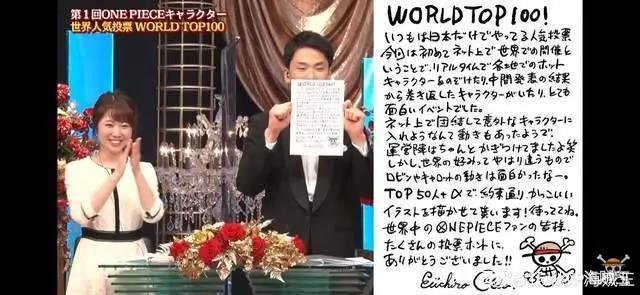 第1回ONE PIECEキャラクター
世界人気投票 WORLD TOP100
WORLD TOP100!
WORLD TOP100!
いつもは日本だけでやってる人気投票
今回は初めてネット上で世界での開催と
いうことで、リアルタイムで各地でのホット
キャラクターものぞけたり、中間発表の結果
から巻き返したキャラクターがいたり、とても
面白いイベントでした。
ネット上で団結して意外なキャラクターに
入れようなんて動きもあったようで、
運営陣はちゃんとかぎつけてましたよ笑
しかし、世界の好みってやはり違うもので
ロビンやキャロットの動きは面白かったなー。
TOP50人+αで、約束通り、かっこいい
イラストを描かせて貰います!待っててね。
世界中のONEPIECEファンの皆様、
たくさんの投票ホントに、
ありがとうございました!!
Eiichiro Oda
海贼王